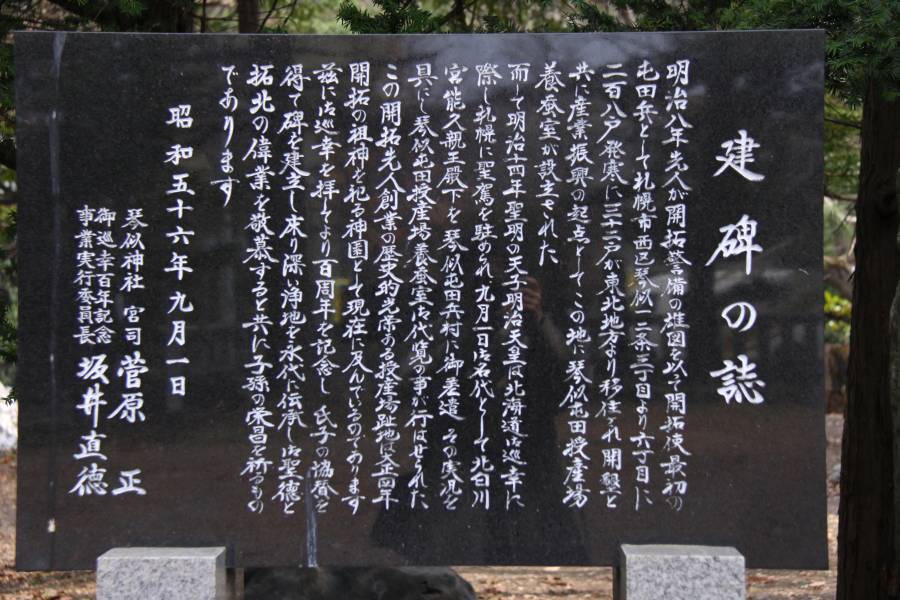 建碑の誌
明治八年先人が開拓警備の雄図を以て開拓使最初の
屯田兵として札幌市西区琴似一二条三丁目より六丁目に
二百八戸発寒に三十二戸が東北地方より移住され開墾と
共に産業振興の起点としてこの地に琴似屯田授産場
養蚕室が設立された
而して明治十四年聖明の天子明治天皇は北海道御巡幸に
際し札幌に聖駕を駐められ九月一日御名代として北白川
宮能久親王殿下を琴似屯田兵村に御差遣 その実況を
具にし琴似屯田授産場養蚕室御代覧の事が行はせられた
この開拓先人創業の歴史的光栄ある授産場趾地は大正四年
開拓の祖神を祀る神園として現在に及んでいるのであります
茲に御巡幸を拝してより百周年を記念し 氏子の協賛を
得て碑を建立し来り深い浄地を永代に伝承し御聖徳と
拓北の偉業を敬慕すると共に子孫の栄昌を祈るもの
であります
昭和五十六年九月一日
琴似神社 宮司 菅原 正
御巡幸百年記念
事業実行委員長 坂井直徳